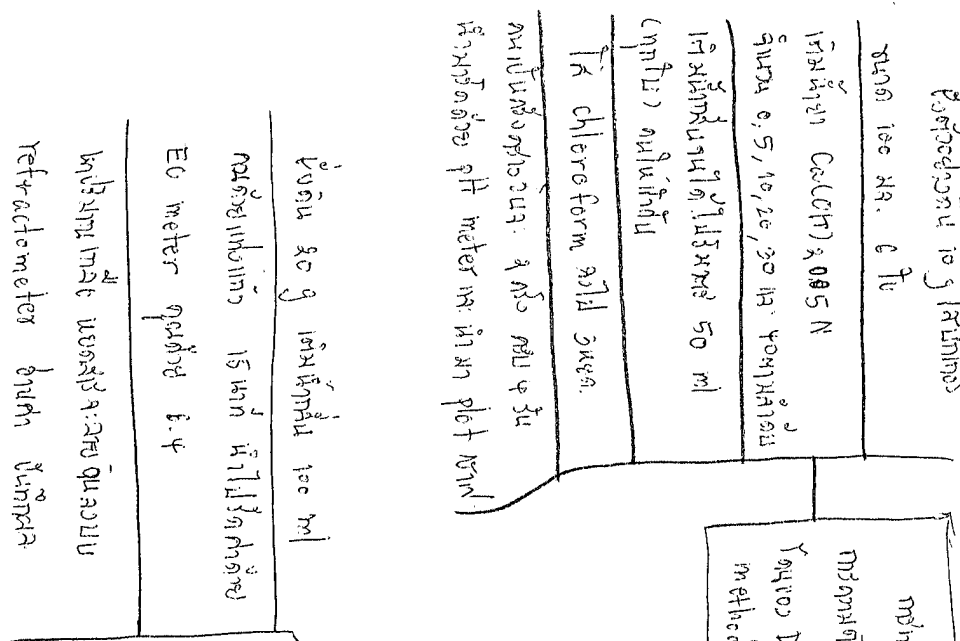 ชั่งตัวอย่างดิน 10 g ใส่บีกเกอร์
ขนาด 100 มล. 6 ใบ
เติมน้ำยา Ca(OH)2 0.05 N
จำนวน 0, 5, 10, 20, 30 และ 40 ตามลำดับ
เติมน้ำกลั่นจนได้ปริมาตร 50 ml
(ทุกใบ) คนให้เข้ากัน
ใส่ chloroform ลงไป 3 หยด
คนเป็นครั้งคราววันละ 2 ครั้ง ครบ 4 วัน
นำมาวัดด้วย pH meter และนำมา plot กราฟ
การ
การความ
โดยของ
method
ชั่งดิน 20 g เติมน้ำกลั่น 100 ml
คนด้วยแท่งแก้ว 15 นาที นำไปวัดค่าด้วย
EC meter คูณด้วย 6.4
หาปริมาณเกลือ หยดสารละลายดินลงบน
refractometer อ่านค่า บันทึกผล